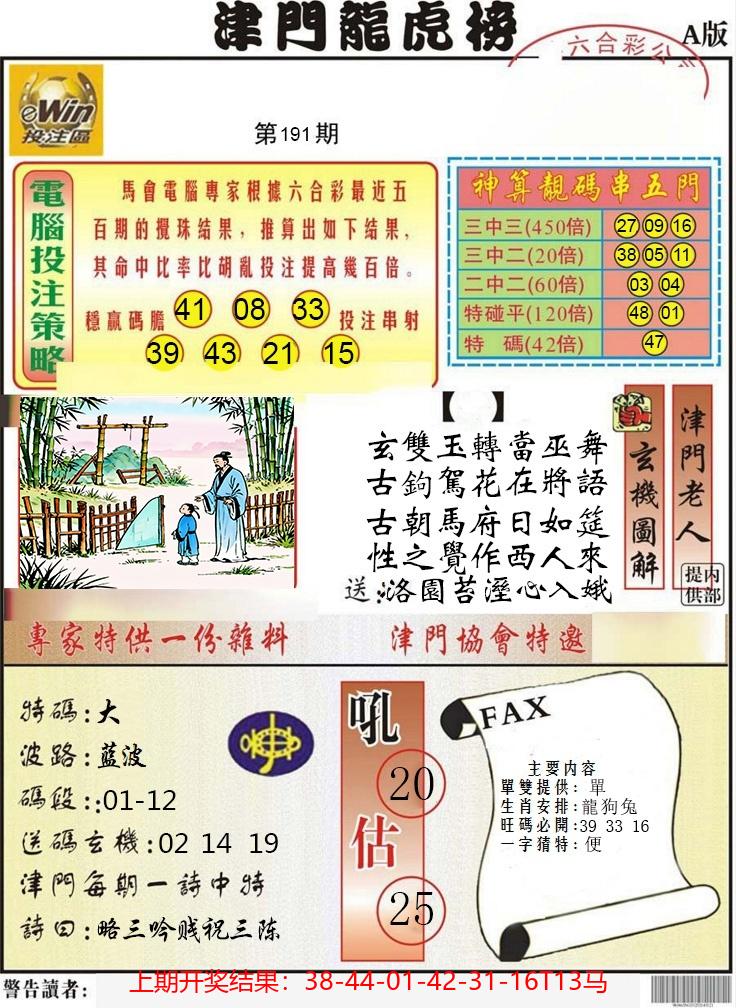 津門龍虎榜
A版
六合彩公
eWin
投注區
第191期
電腦投注策略
馬會電腦專家根據六合彩最近五
百期的攪珠结果，推算出如下结果，
其命中比率比胡亂投注提高幾百倍。
穩贏碼膽 41 08 33 投注串射
39 43 21 15
神算靚碼串五門
三中三(450倍) 27 09 16
三中二(20倍) 38 05 11
二中二(60倍) 03 04
特碰平(120倍) 48 01
特 碼(42倍) 47
【 】
玄雙玉轉當巫舞
古鉤駕花在將語
古朝馬府日如筵
性之覺作西人來
送:洛園苔溼心入娥
玄機圖解
津門老人
内部提供
專家特供一份雜料
津門協會特邀
特碼:大
波路:蓝波
碼段::01-12
送碼玄機:02 14 19
津門每期一詩中特
詩曰:略三吟贱祝三陈
吼
20
估
25
FAX
主要内容
單雙提供: 單
生肖安排:龍狗兔
旺码必開:39 33 16
一字猜特:便
警告讀者:
上期开奖结果：38-44-01-42-31-16T13马